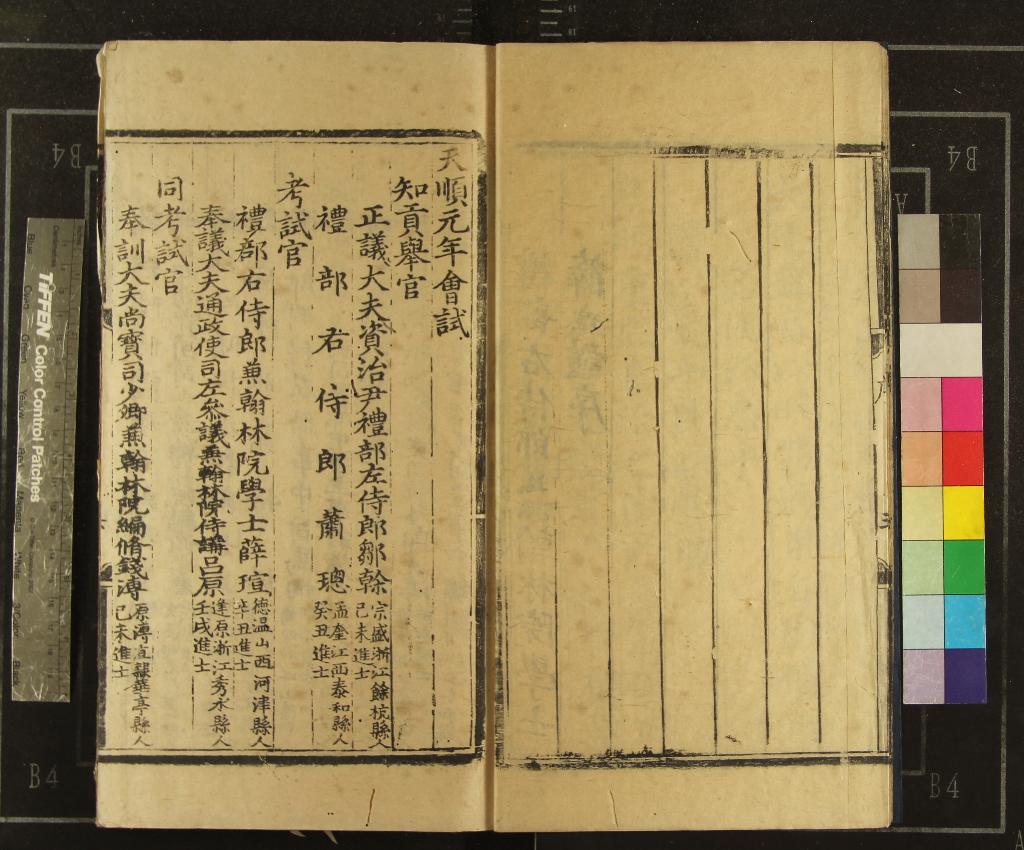 天順元年會試
知貢舉官
正議大夫資治尹禮部左侍郎鄒榦宗盛浙江餘杭縣人己未進士
禮部右侍郎蕭璁孟奎江西泰和縣人癸丑進士
考試官
禮部右侍郎兼翰林院學士薛瑄德温山西河津縣人辛丑進士
奉議大夫通政使司左叅議兼翰林院侍講吕原逢原浙江秀水縣人壬戌進士
同考試官
奉訓大夫尚寶司少卿兼翰林院編脩錢溥原溥直隸華亭縣人己未進士
TIFFEN Color Control Patches
B4
B4
B4
B4